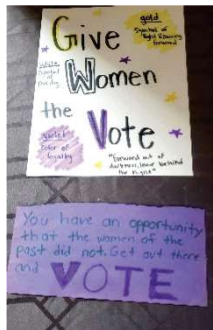 Give
gold
Symbol of
light shining
forward
white
Symbol
of
Purity
Women
the
Vote
violet
Color of
loyalty
"Forward out of
darkness, leave behind
the night"
You have an opportunity
that the women of the
past did not. Get out there
and VOTE